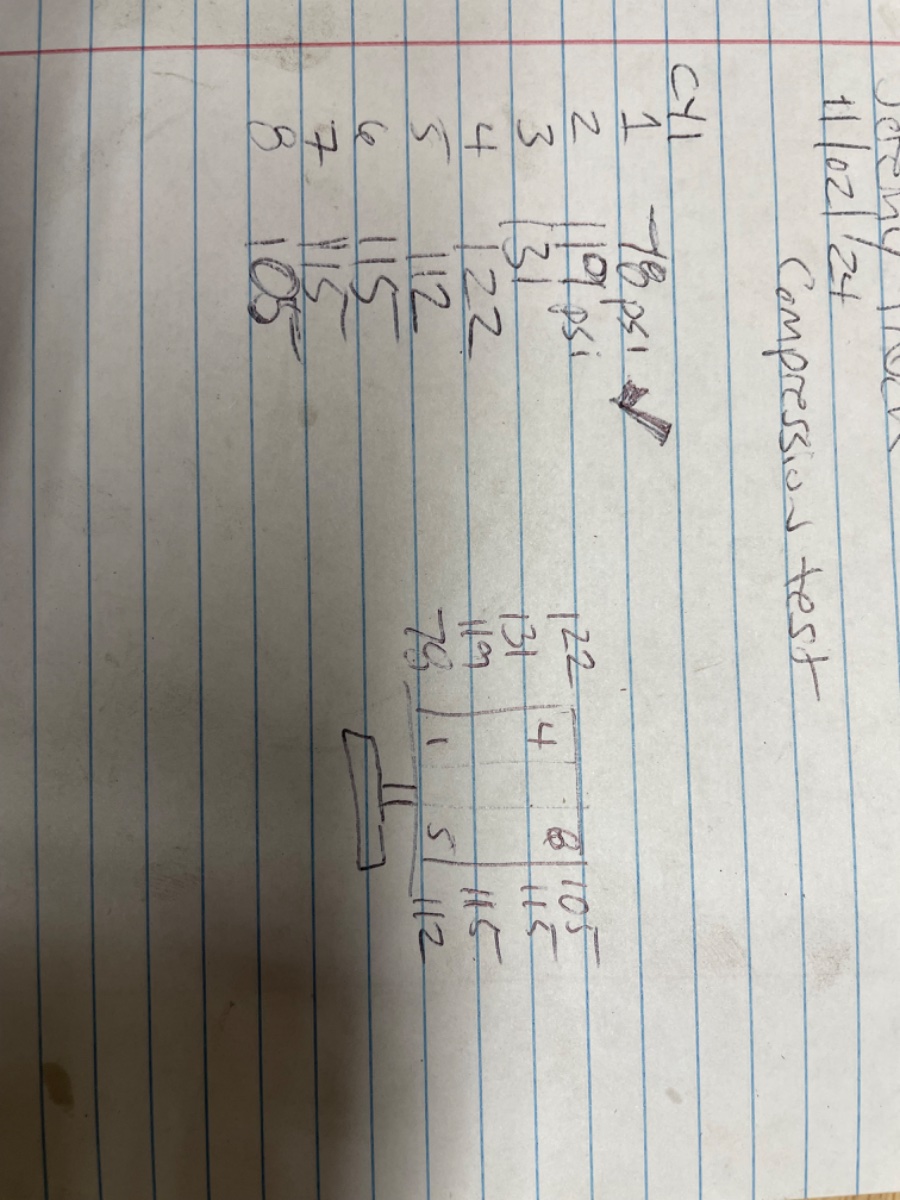 11/02/24
Compression test
CYl
1 78 psi ✓
2 119 psi
3 131
4 122
5 112
6 115
7 115
8 105
122 4 8 105
131 115
119 115
78 1 5 112